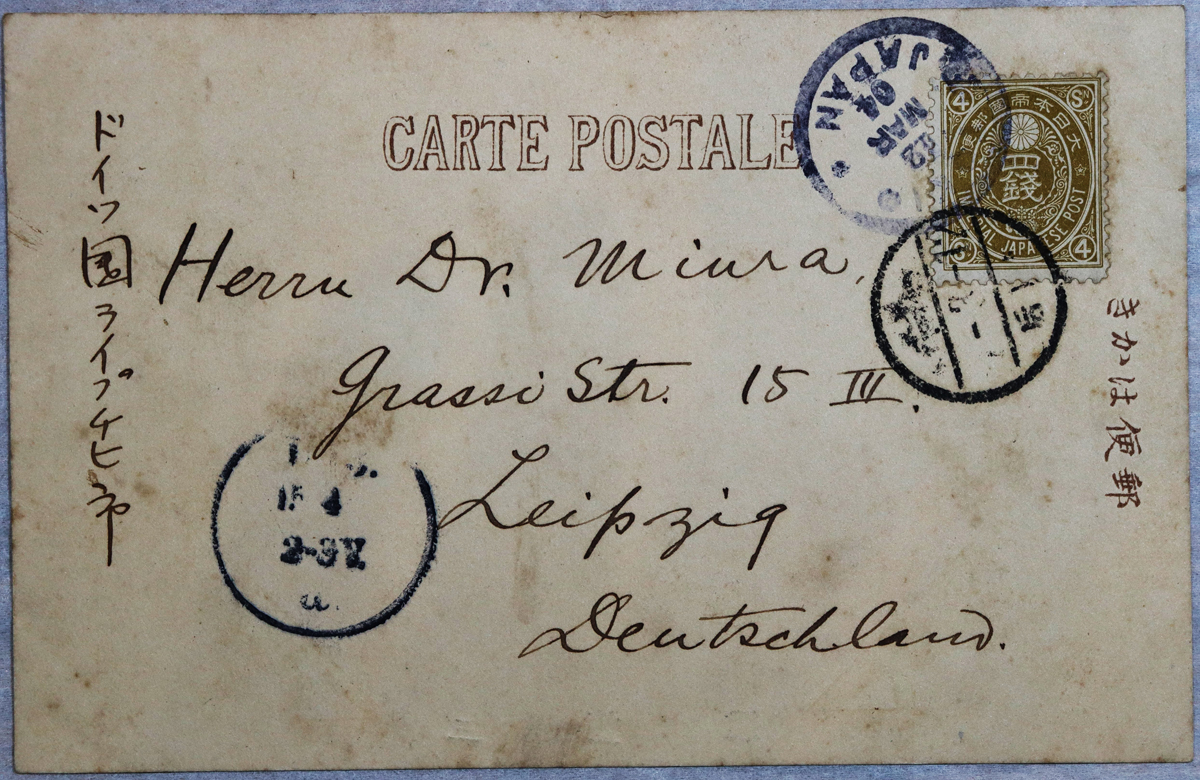 CARTE POSTALE
JAPAN
12
MAR
04
4 Sn
大日本帝國郵便
四錢
IMPERIAL JAPANESE POST
4
きかは便郵
ドイツ國ライプチヒ市
Herrn Dr. Miura,
Grassi Str. 15 III.
Leipzig
Deutschland.
15 4
2-3 V.
a.